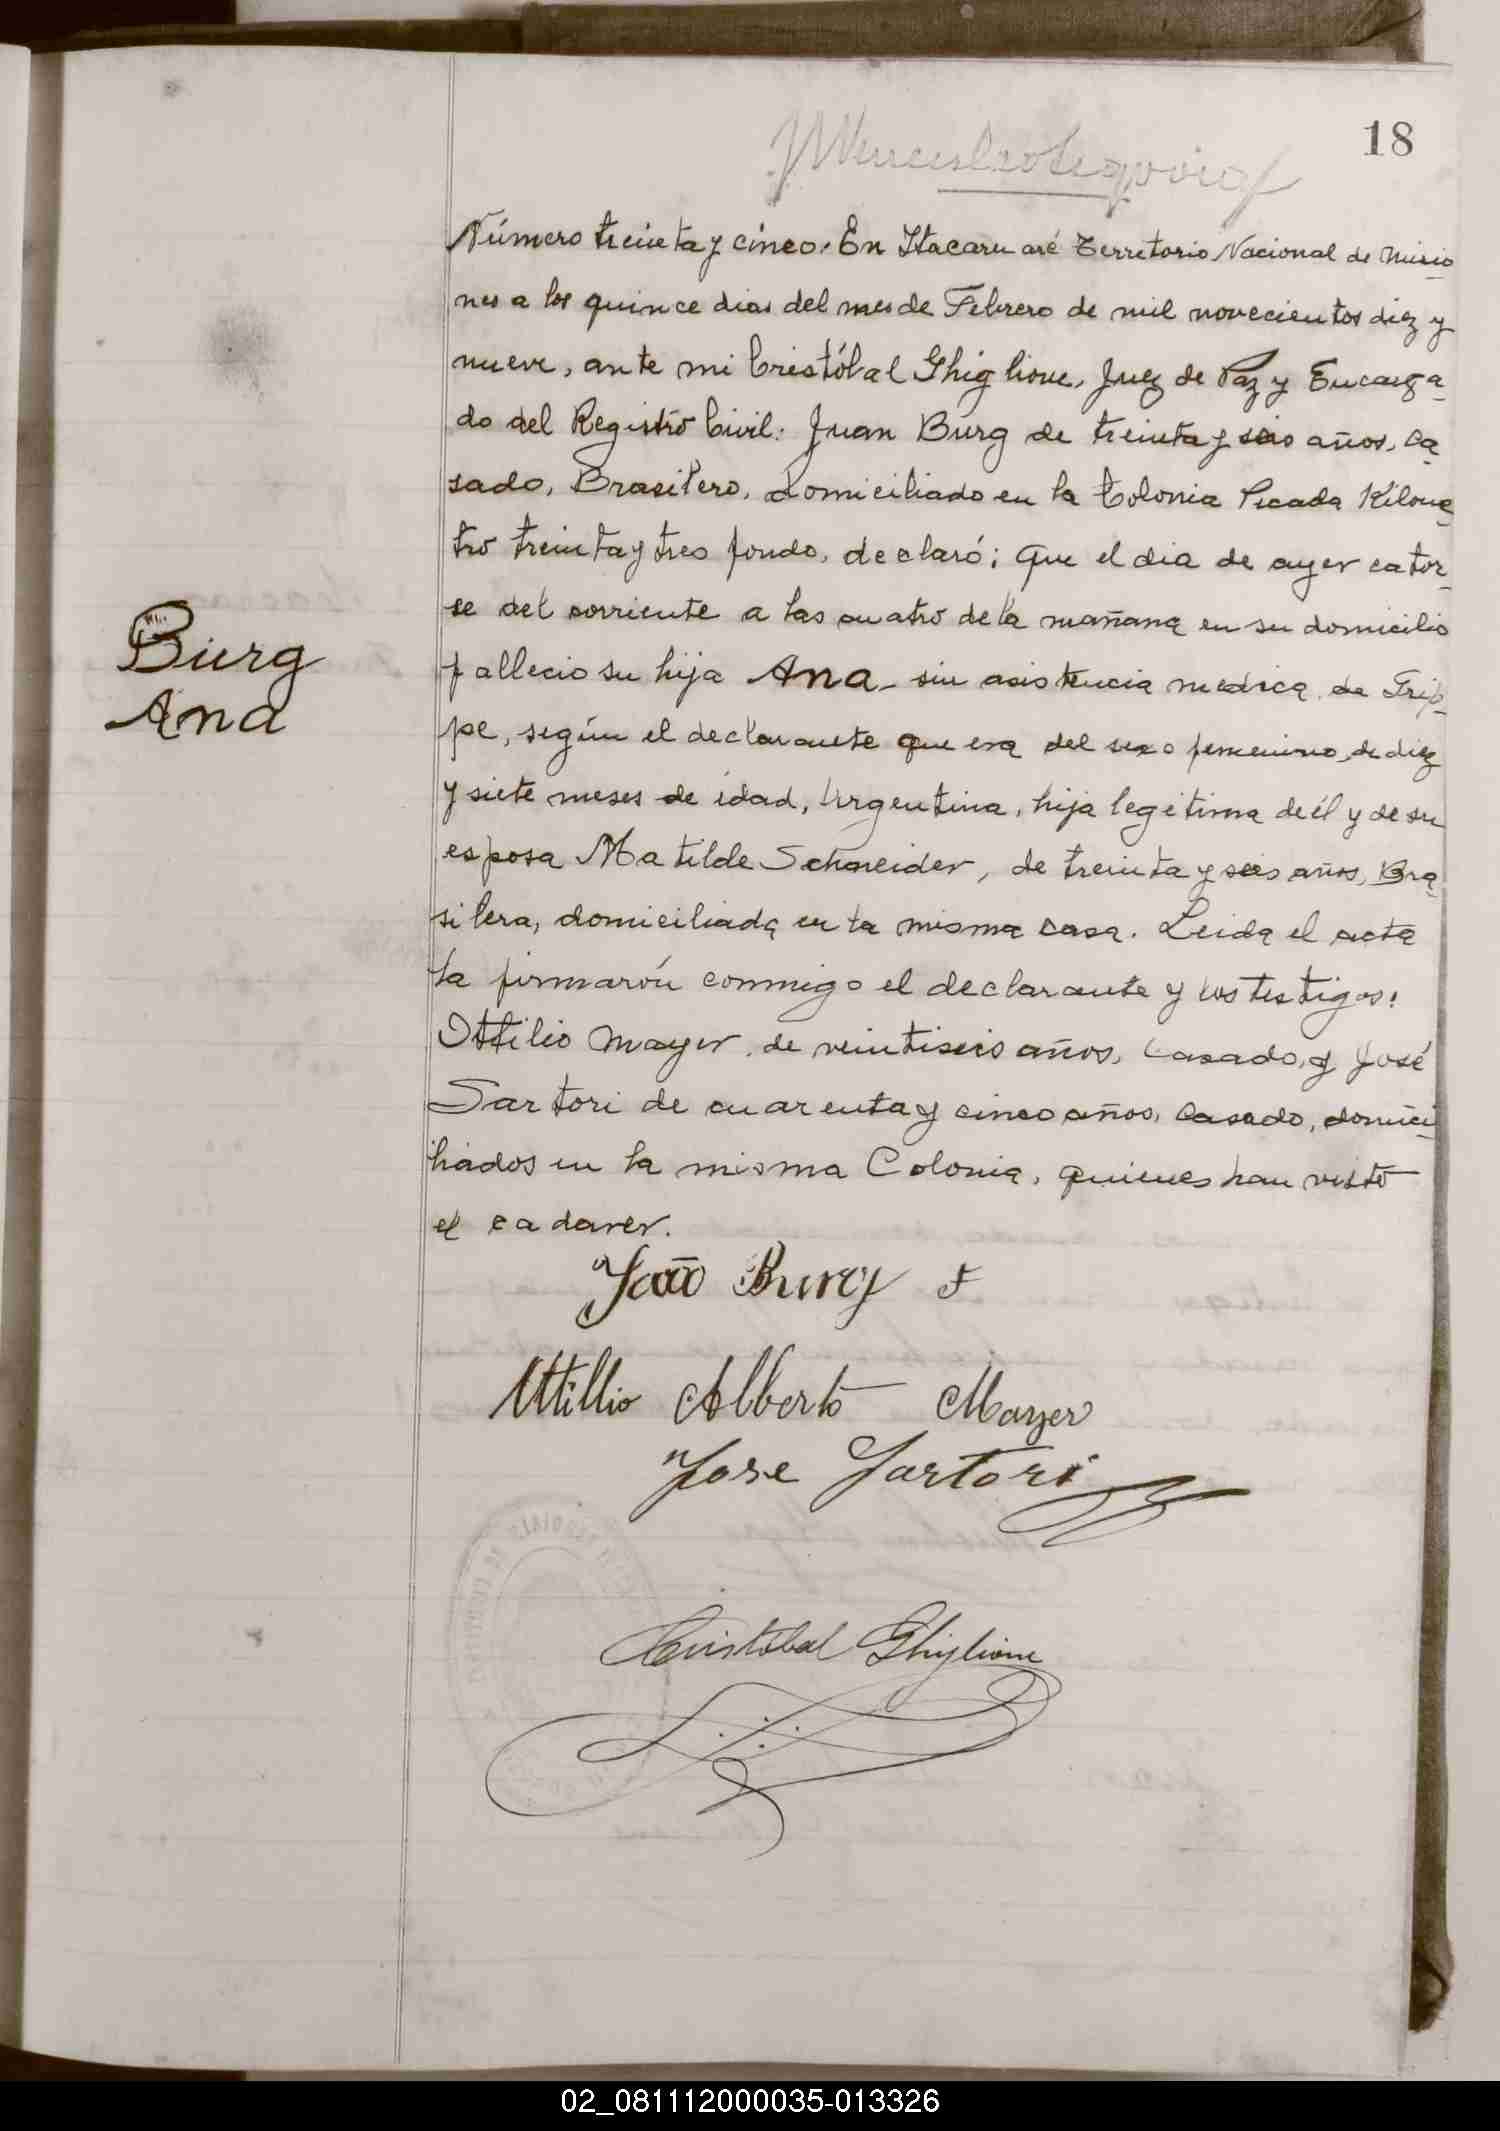 18
Número treinta y cinco. En Itacaruaré Territorio Nacional de Misio-
nes a los quince dias del mes de Febrero de mil novecientos diez y
nueve, ante mi Cristóbal Ghiglione, Juez de Paz y Encarga-
do del Registro Civil: Juan Burg de treinta y seis años, ca-
sado, Brasilero, domiciliado en la Colonia Picada Kilome-
tro treinta y tres fondo, declaró; que el dia de ayer cator-
se del corriente a las cuatro de la mañana en su domicilio
fallecio su hija Ana sin asistencia medica, de Grip-
pe, según el declarante que era del sexo femenino, de diez
y siete meses de idad, Argentina, hija legitima de él y de su
esposa Matilde Schneider, de treinta y seis años, Bra-
silera, domiciliada en la misma casa. Leida el acta
la firmarón conmigo el declarante y los testigos:
Ottilio Mayer, de veintiseis años, casado, y José
Sartori de cuarenta y cinco años, casado, domici-
liados en la misma Colonia, quienes han visto
el cadaver.
Burg
Ana
João Burg
Attillio Alberto Mayer
Jose Sartori
Cristóbal Ghiglione
02_081112000035-013326